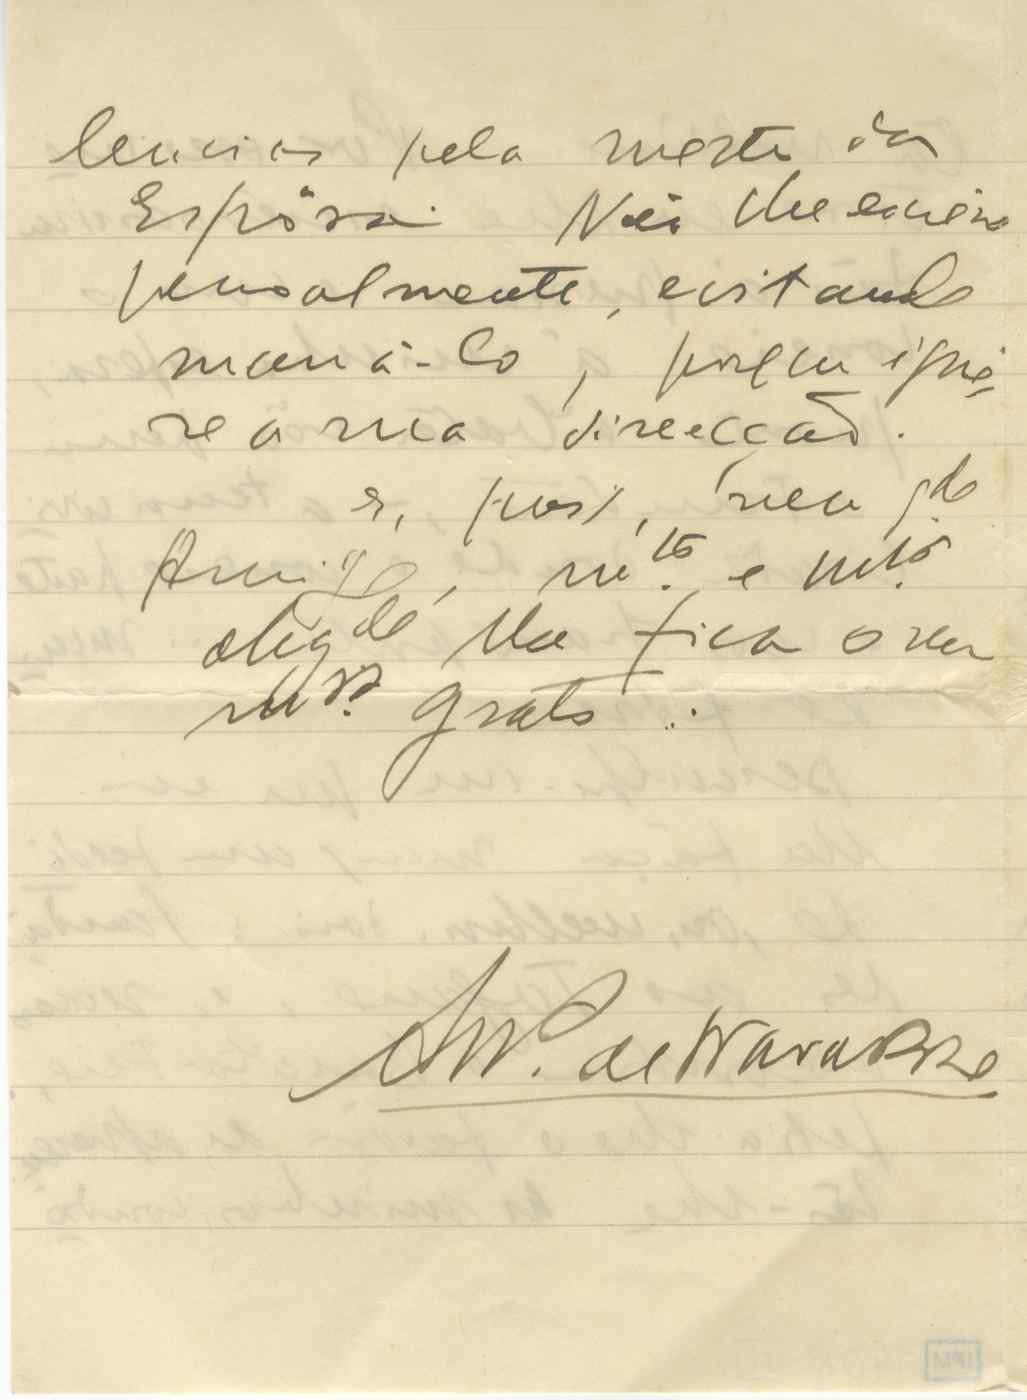 lencias pela morte da
Espôsa. Não lhe escrevo
pessoalmente, evitando
maçá-lo, porque igno-
ro a sua direcção.
E, pois, meu gde
Amigo, mto. e mto.
obrigdo lhe fica o seu
mto. grato
de Navarro